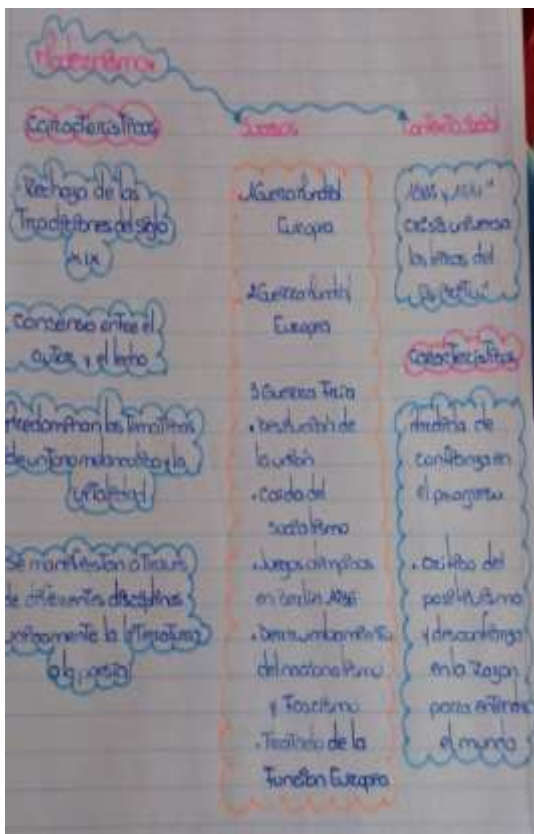 Modernismo
Características
Rechazo de las
Tradiciones del siglo
XIX
concenso entre el
autor y el lecto
Predominan las Tematicas
de un tono melancolico y la
Se manifiestan a traves
de diferentes disciplinas
unicamente la literatura
o la poesia
Sucesos
1 Guerra Mundial
Europea
2 Guerra Mundial
Europea
3 Guerra Fria
. Destrucción de
la unión
. caida del
socialismo
. Juegos olimpicos
en berlin 1936
. Derrumbamiento
del nacionalismo
y Fascismo
. Tratado de la
Función Europea
Contexto Social
crisis universal
las letras del
Características
perdida de
confianza en
el progreso
. critica del
positivismo
y desconfianza
en la razon
para entender
el mundo